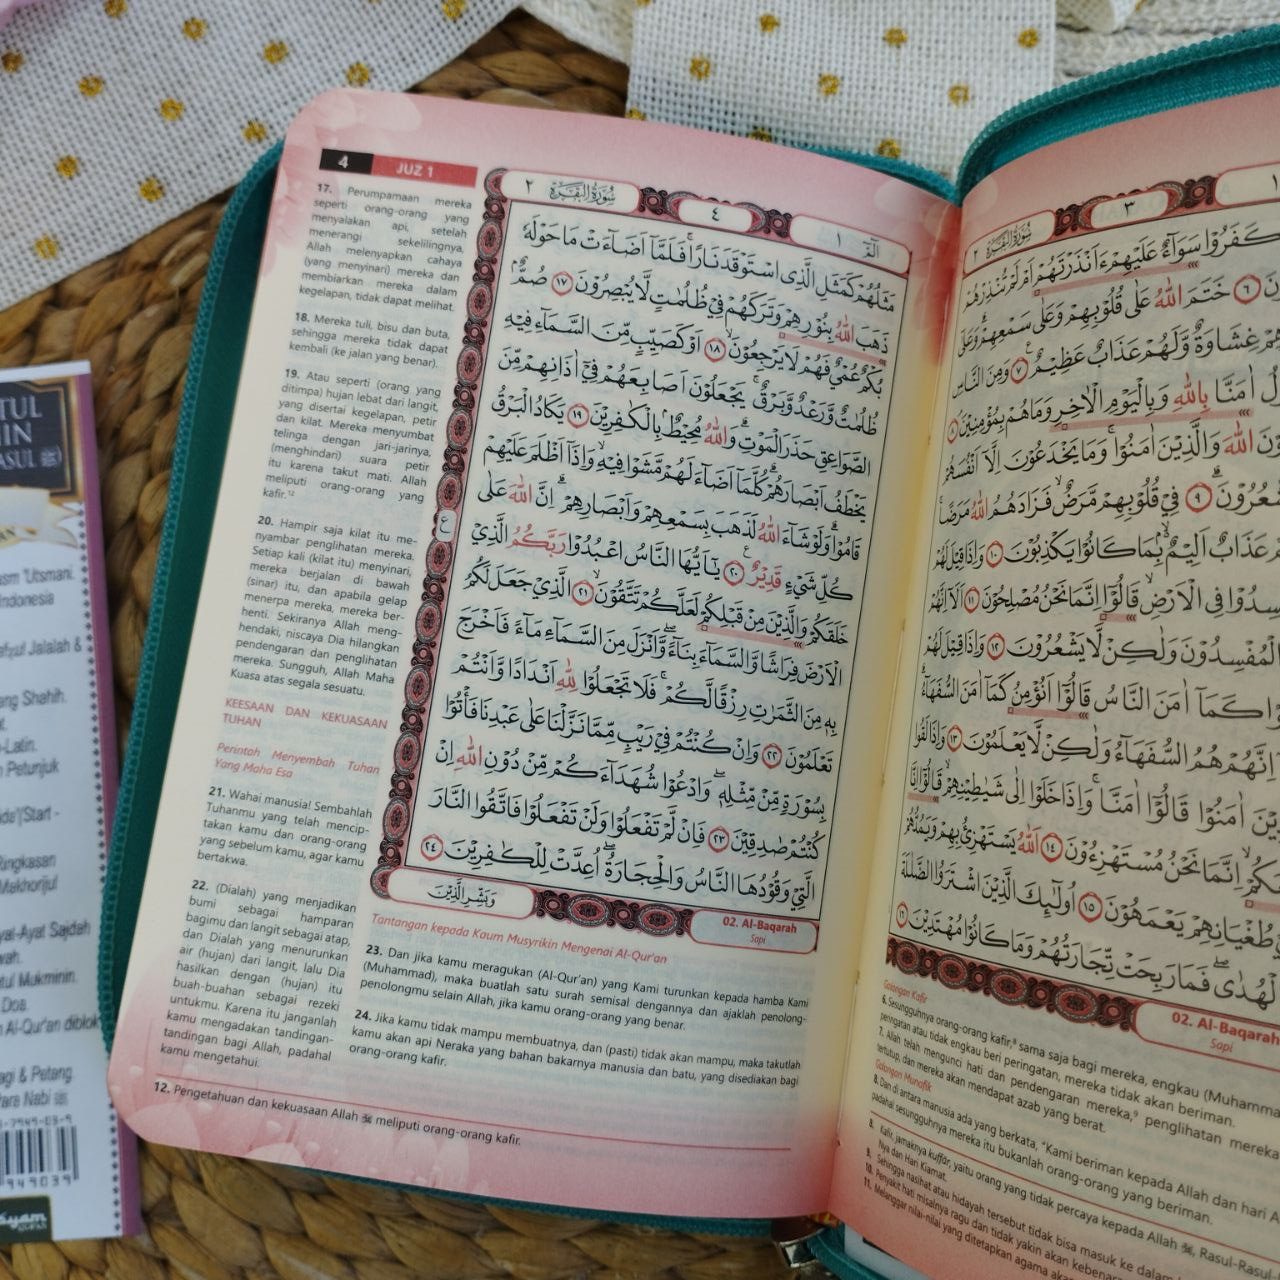 4 JUZ 1
17. Perumpamaan mereka
seperti orang-orang yang
menyalakan api, setelah
menerangi sekelilingnya,
Allah melenyapkan cahaya
(yang menyinari) mereka dan
membiarkan mereka dalam
kegelapan, tidak dapat melihat.
18. Mereka tuli, bisu dan buta,
sehingga mereka tidak dapat
kembali (ke jalan yang benar).
19. Atau seperti (orang yang
ditimpa) hujan lebat dari langit,
yang disertai kegelapan, petir
dan kilat. Mereka menyumbat
telinga dengan jari-jarinya,
(menghindari) suara petir
itu karena takut mati. Allah
meliputi orang-orang yang
kafir.¹²
20. Hampir saja kilat itu me-
nyambar penglihatan mereka.
Setiap kali (kilat itu) menyinari,
mereka berjalan di bawah
(sinar) itu, dan apabila gelap
menerpa mereka, mereka ber-
henti. Sekiranya Allah meng-
hendaki, niscaya Dia hilangkan
pendengaran dan penglihatan
mereka. Sungguh, Allah Maha
Kuasa atas segala sesuatu.
KEESAAN DAN KEKUASAAN
TUHAN
Perintah Menyembah Tuhan
Yang Maha Esa
21. Wahai manusia! Sembahlah
Tuhanmu yang telah mencip-
takan kamu dan orang-orang
yang sebelum kamu, agar kamu
bertakwa.
22. (Dialah) yang menjadikan
bumi sebagai hamparan
bagimu dan langit sebagai atap,
dan Dialah yang menurunkan
air (hujan) dari langit, lalu Dia
hasilkan dengan (hujan) itu
buah-buahan sebagai rezeki
untukmu. Karena itu janganlah
kamu mengadakan tandingan-
tandingan bagi Allah, padahal
kamu mengetahui.
الٓمّٓ ١ ٤ سُوْرَةُ الْبَقَرَةِ ٢
مَثَلُهُمْ كَمَثَلِ الَّذِى اسْتَوْقَدَ نَارًاۚ فَلَمَّآ اَضَاۤءَتْ مَا حَوْلَهٗ
ذَهَبَ اللّٰهُ بِنُوْرِهِمْ وَتَرَكَهُمْ فِيْ ظُلُمٰتٍ لَّا يُبْصِرُوْنَ ١٧ صُمٌّۢ
بُكْمٌ عُمْيٌ فَهُمْ لَا يَرْجِعُوْنَۙ ١٨ اَوْ كَصَيِّبٍ مِّنَ السَّمَاۤءِ فِيْهِ
ظُلُمٰتٌ وَّرَعْدٌ وَّبَرْقٌۚ يَجْعَلُوْنَ اَصَابِعَهُمْ فِيْٓ اٰذَانِهِمْ مِّنَ
الصَّوَاعِقِ حَذَرَ الْمَوْتِۗ وَاللّٰهُ مُحِيْطٌۢ بِالْكٰفِرِيْنَ ١٩ يَكَادُ الْبَرْقُ
يَخْطَفُ اَبْصَارَهُمْۗ كُلَّمَآ اَضَاۤءَ لَهُمْ مَّشَوْا فِيْهِۙ وَاِذَآ اَظْلَمَ عَلَيْهِمْ
قَامُوْاۗ وَلَوْ شَاۤءَ اللّٰهُ لَذَهَبَ بِسَمْعِهِمْ وَاَبْصَارِهِمْۗ اِنَّ اللّٰهَ عَلٰى
كُلِّ شَيْءٍ قَدِيْرٌ ٢٠ يٰٓاَيُّهَا النَّاسُ اعْبُدُوْا رَبَّكُمُ الَّذِيْ
خَلَقَكُمْ وَالَّذِيْنَ مِنْ قَبْلِكُمْ لَعَلَّكُمْ تَتَّقُوْنَۙ ٢١ الَّذِيْ جَعَلَ لَكُمُ
الْاَرْضَ فِرَاشًا وَّالسَّمَاۤءَ بِنَاۤءًۖ وَّاَنْزَلَ مِنَ السَّمَاۤءِ مَاۤءً فَاَخْرَجَ
بِهٖ مِنَ الثَّمَرٰتِ رِزْقًا لَّكُمْۚ فَلَا تَجْعَلُوْا لِلّٰهِ اَنْدَادًا وَّاَنْتُمْ
تَعْلَمُوْنَ ٢٢ وَاِنْ كُنْتُمْ فِيْ رَيْبٍ مِّمَّا نَزَّلْنَا عَلٰى عَبْدِنَا فَأْتُوْا
بِسُوْرَةٍ مِّنْ مِّثْلِهٖۖ وَادْعُوْا شُهَدَاۤءَكُمْ مِّنْ دُوْنِ اللّٰهِ اِنْ
كُنْتُمْ صٰدِقِيْنَ ٢٣ فَاِنْ لَّمْ تَفْعَلُوْا وَلَنْ تَفْعَلُوْا فَاتَّقُوا النَّارَ
الَّتِيْ وَقُوْدُهَا النَّاسُ وَالْحِجَارَةُۖ اُعِدَّتْ لِلْكٰفِرِيْنَ ٢٤
ع
وَبَشِّرِ الَّذِيْنَ
02. Al-Baqarah
Sapi
Tantangan kepada Kaum Musyrikin Mengenai Al-Qur'an
23. Dan jika kamu meragukan (Al-Qur'an) yang Kami turunkan kepada hamba Kami
(Muhammad), maka buatlah satu surah semisal dengannya dan ajaklah penolong-
penolongmu selain Allah, jika kamu orang-orang yang benar.
24. Jika kamu tidak mampu membuatnya, dan (pasti) tidak akan mampu, maka takutlah
kamu akan api Neraka yang bahan bakarnya manusia dan batu, yang disediakan bagi
orang-orang kafir.
12. Pengetahuan dan kekuasaan Allah ﷻ meliputi orang-orang kafir.
٣ سُوْرَةُ الْبَقَرَةِ ٢
كَفَرُوْا سَوَاۤءٌ عَلَيْهِمْ ءَاَنْذَرْتَهُمْ اَمْ لَمْ تُنْذِرْهُمْ
٦ خَتَمَ اللّٰهُ عَلٰى قُلُوْبِهِمْ وَعَلٰى سَمْعِهِمْۗ وَعَلٰٓى
غِشَاوَةٌ وَّلَهُمْ عَذَابٌ عَظِيْمٌ ٧ وَمِنَ النَّاسِ
اٰمَنَّا بِاللّٰهِ وَبِالْيَوْمِ الْاٰخِرِ وَمَا هُمْ بِمُؤْمِنِيْنَۘ ٨
اللّٰهَ وَالَّذِيْنَ اٰمَنُوْاۚ وَمَا يَخْدَعُوْنَ اِلَّآ اَنْفُسَهُمْ
٩ فِيْ قُلُوْبِهِمْ مَّرَضٌۙ فَزَادَهُمُ اللّٰهُ مَرَضًاۚ
عَذَابٌ اَلِيْمٌ ەۢ بِمَا كَانُوْا يَكْذِبُوْنَ ١٠ وَاِذَا قِيْلَ لَهُمْ
فِى الْاَرْضِۙ قَالُوْٓا اِنَّمَا نَحْنُ مُصْلِحُوْنَ ١١ اَلَآ اِنَّهُمْ
الْمُفْسِدُوْنَ وَلٰكِنْ لَّا يَشْعُرُوْنَ ١٢ وَاِذَا قِيْلَ لَهُمْ
كَمَآ اٰمَنَ النَّاسُ قَالُوْٓا اَنُؤْمِنُ كَمَآ اٰمَنَ السُّفَهَاۤءُۗ
اِنَّهُمْ هُمُ السُّفَهَاۤءُ وَلٰكِنْ لَّا يَعْلَمُوْنَ ١٣ وَاِذَا لَقُوا
اٰمَنُوْا قَالُوْٓا اٰمَنَّاۚ وَاِذَا خَلَوْا اِلٰى شَيٰطِيْنِهِمْۙ قَالُوْٓا اِنَّا
اِنَّمَا نَحْنُ مُسْتَهْزِءُوْنَ ١٤ اَللّٰهُ يَسْتَهْزِئُ بِهِمْ وَيَمُدُّهُمْ
طُغْيَانِهِمْ يَعْمَهُوْنَ ١٥ اُولٰۤىِٕكَ الَّذِيْنَ اشْتَرَوُا الضَّلٰلَةَ
فَمَا رَبِحَتْ تِّجَارَتُهُمْ وَمَا كَانُوْا مُهْتَدِيْنَ ١٦
02. Al-Baqarah
Sapi
Golongan Kafir
6. Sesungguhnya orang-orang kafir,⁸ sama saja bagi mereka, engkau (Muhamma
peringatan atau tidak engkau beri peringatan, mereka tidak akan beriman.
7. Allah telah mengunci hati dan pendengaran mereka,⁹ penglihatan mereka
tertutup, dan mereka akan mendapat azab yang berat.
Golongan Munafik
8. Dan di antara manusia ada yang berkata, "Kami beriman kepada Allah dan hari A
padahal sesungguhnya mereka itu bukanlah orang-orang yang beriman.
8. Kafir, jamaknya kuffār, yaitu orang yang tidak percaya kepada Allah ﷻ, Rasul-Rasul-
Nya dan Hari Kiamat.
9. Sehingga nasihat atau hidayah tersebut tidak bisa masuk ke dalam
10. Penyakit hati misalnya ragu dan tidak yakin akan kebenar
11. Melanggar nilai-nilai yang ditetapkan agama aka
TUL
IN
ASUL ﷺ
asm 'Utsmani.
Indonesia
afzul Jalalah &
ang Shahih.
-Latin.
Petunjuk
da'/Start -
Ringkasan
Makhorijul
yat-Ayat Sajdah
tul Mukminin.
Doa.
Al-Qur'an diblok
agi & Petang
Para Nabi
-7949-03-9
949039
Syam